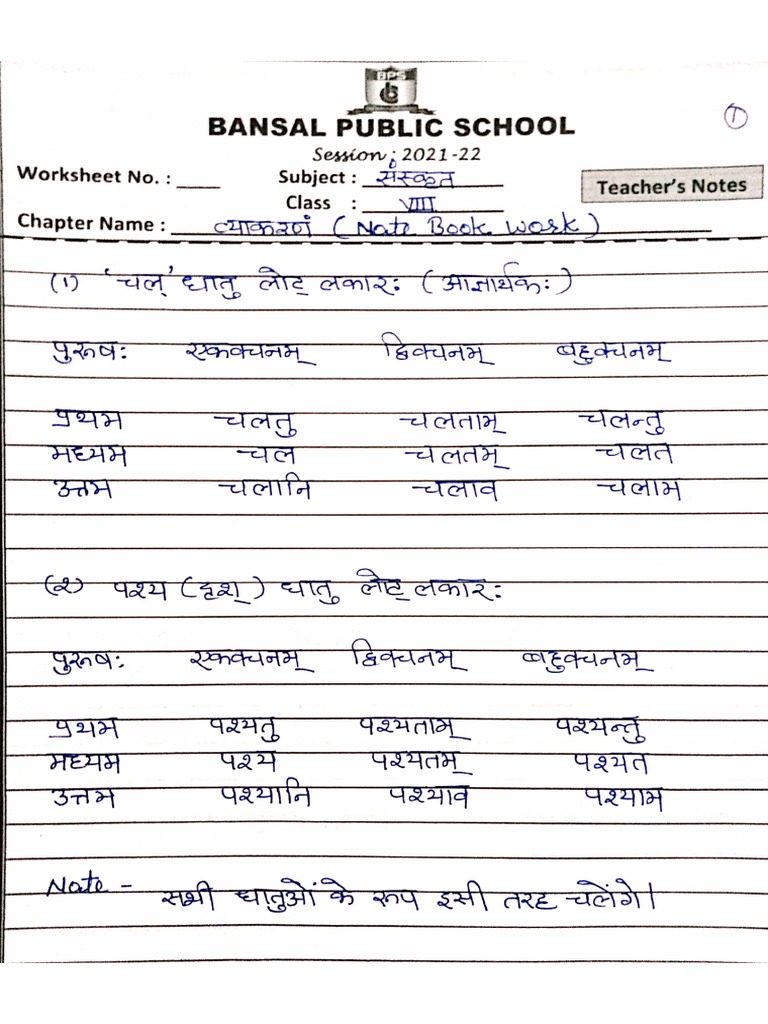 BPS
BANSAL PUBLIC SCHOOL
1
Session : 2021-22
Worksheet No. : ____ Subject : संस्कृत
Teacher's Notes
Class : VIII
Chapter Name : व्याकरणं ( Note Book Work )
(1) 'चल्' धातु लोट् लकारः ( आज्ञार्थकः )
पुरूषः एकवचनम् द्विवचनम् बहुवचनम्
प्रथम चलतु चलताम् चलन्तु
मध्यम चल चलतम् चलत
उत्तम चलानि चलाव चलाम
(२) पश्य ( दृश् ) धातु लोट् लकारः
पुरूषः एकवचनम् द्विवचनम् बहुवचनम्
प्रथम पश्यतु पश्यताम् पश्यन्तु
मध्यम पश्य पश्यतम् पश्यत
उत्तम पश्यानि पश्याव पश्याम
Note - सभी धातुओं के रूप इसी तरह चलेंगे।